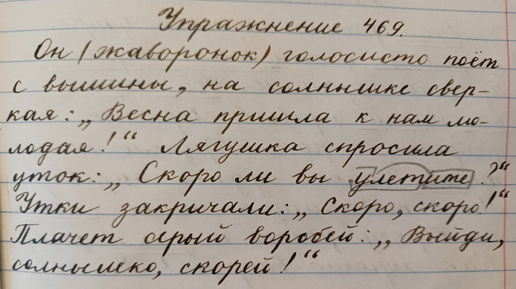 Упражнение 469.
Он (жаворонок) голосисто поёт
с вышины, на солнышке свер-
кая: „Весна пришла к нам мо-
лодая!“ Лягушка спросила
уток: „Скоро ли вы улетите?“
Утки закричали: „Скоро, скоро!“
Плачет серый воробей: „Выйди,
солнышко, скорей!“